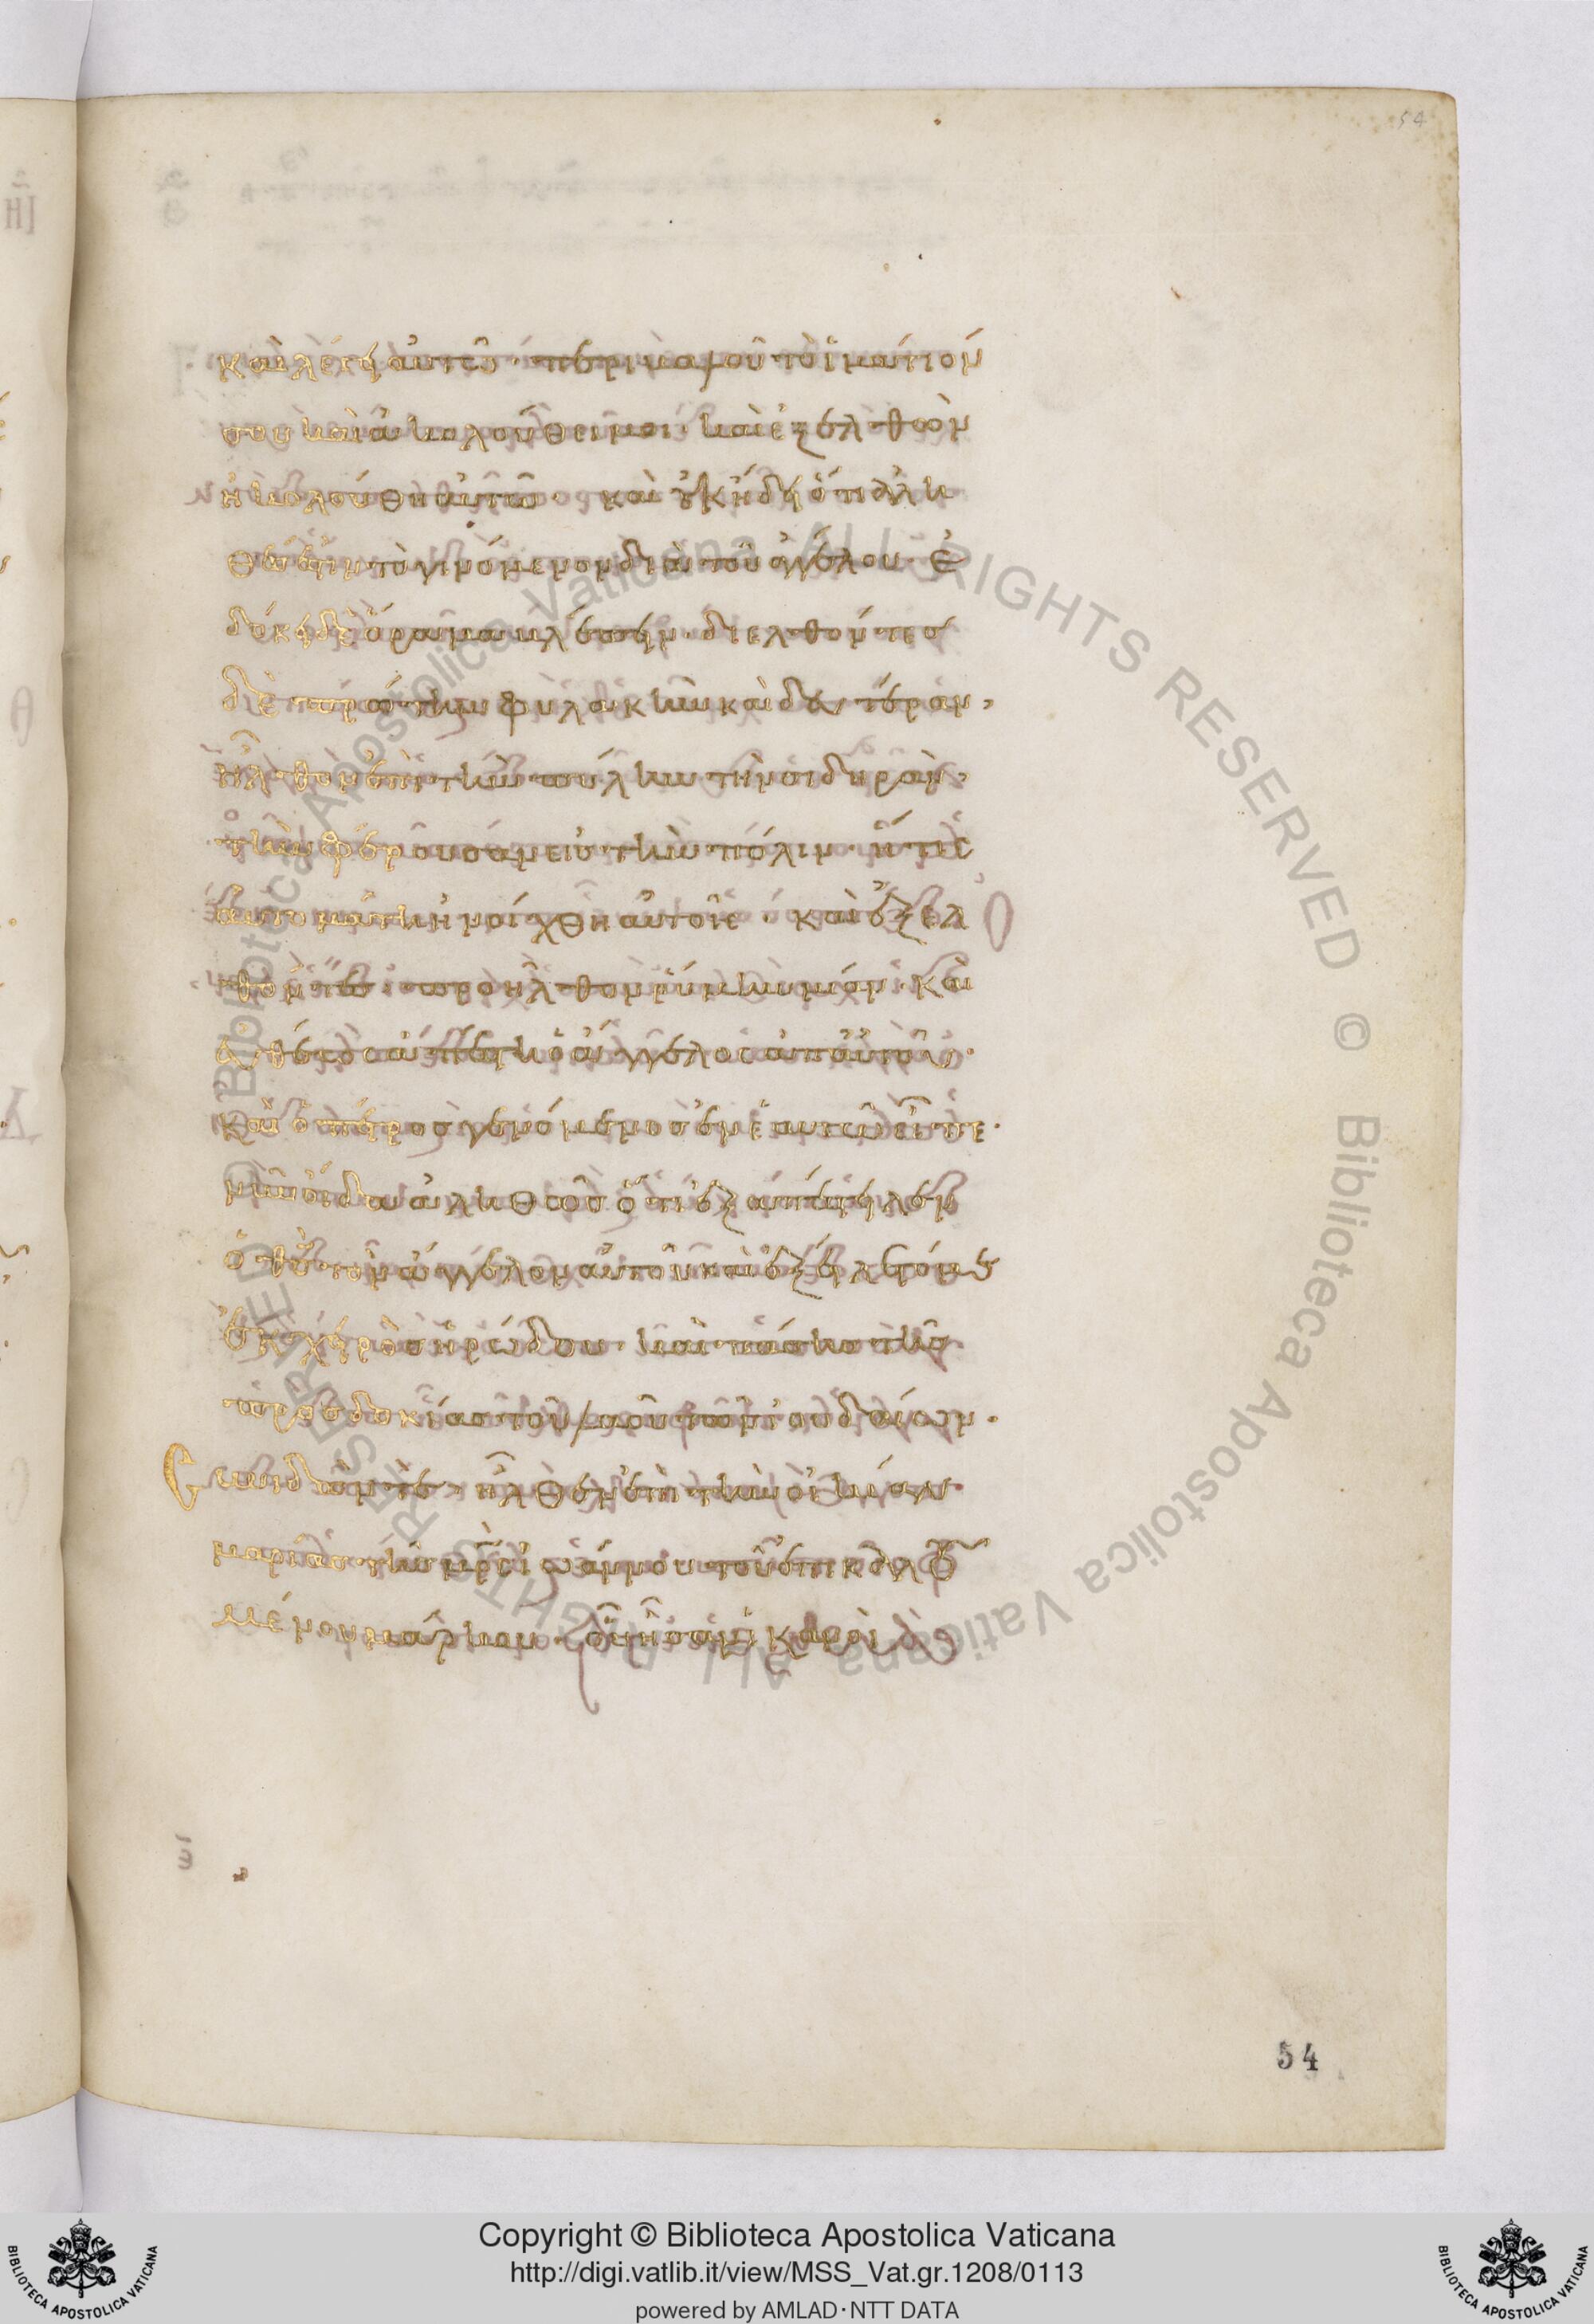 54
καὶ λέγει αὐτῶ· περιβαλοῦ τὸ ἱμάτιόν
σου καὶ ἀκολούθει μοι· καὶ ἐξελθὼν
ἠκολούθη αὐτῶ· καὶ οὐκ ἤδει ὅτι ἀλη
θές ἐστιν τὸ γινόμενον διὰ τοῦ ἀγγέλου· ἐ
δόκει δὲ ὅραμα βλέπειν· διελθόντες
δὲ πρώτην φυλακὴν καὶ δευτέραν,
ἦλθον ἐπὶ τὴν πύλην τὴν σιδηρὰν·
τὴν φέρουσαν εἰς τὴν πόλιν· ἥτις
αὐτομάτη ἠνοίχθη αὐτοῖς· καὶ ἐξελ
θόντες· προῆλθον ῥύμην μίαν· καὶ
εὐθέως ἀπέστη ὁ ἄγγελος ἀπ' αὐτοῦ·
καὶ ὁ πέτρος γενόμενος ἐν ἑαυτῶ εἶπε·
νῦν οἶδα ἀληθῶς ὅτι ἐξαπέστειλεν
ὁ θς τὸν ἄγγελον αὐτοῦ καὶ ἐξείλετό με
ἐκ χειρὸς ἡρώδου· καὶ πάσης τῆς
προσδοκίας τοῦ λαοῦ τῶν ἰουδαίων·
Συνιδών τε, ἦλθεν ἐπὶ τὴν οἰκίαν
μαρίας τῆς μρς ἰωάννου τοῦ ἐπικαλου
μένου μάρκου· οὗ ἦσαν ἱκανοὶ
54
© Biblioteca Apostolica Vaticana ALL RIGHTS RESERVED © Biblioteca Apostolica Vaticana ALL RIGHTS RESERVED
Copyright © Biblioteca Apostolica Vaticana
http://digi.vatlib.it/view/MSS_Vat.gr.1208/0113
powered by AMLAD·NTT DATA
BIBLIOTECA APOSTOLICA VATICANA
BIBLIOTECA APOSTOLICA VATICANA